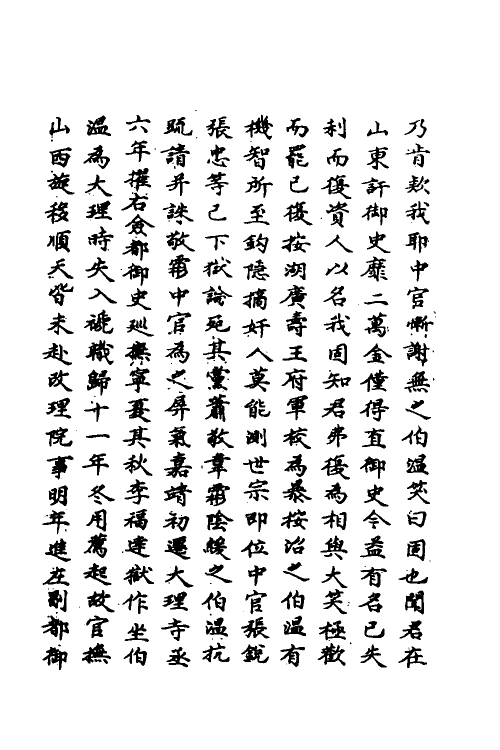 乃肯欵我耶中官慚謝無之伯温笑曰固也聞君在
山東訐御史靡二萬金僅得直御史今益有名已失
利而復資人以名我固知君弗復為相與大笑極歡
而罷已復按湖廣壽王府軍校為暴按治之伯温有
機智所至鈎隱摘奸人莫能測世宗即位中官張銳
張忠等已下獄論死其黨蕭敬韋霦陰緩之伯温抗
疏請并誅敬霦中官為之屏氣嘉靖初遷大理寺丞
六年擢右僉都御史巡撫寧夏其秋李福達獄作坐伯
温為大理時失入褫職歸十一年冬用薦起故官撫
山西旋移順天皆未赴改理院事明年進左副都御